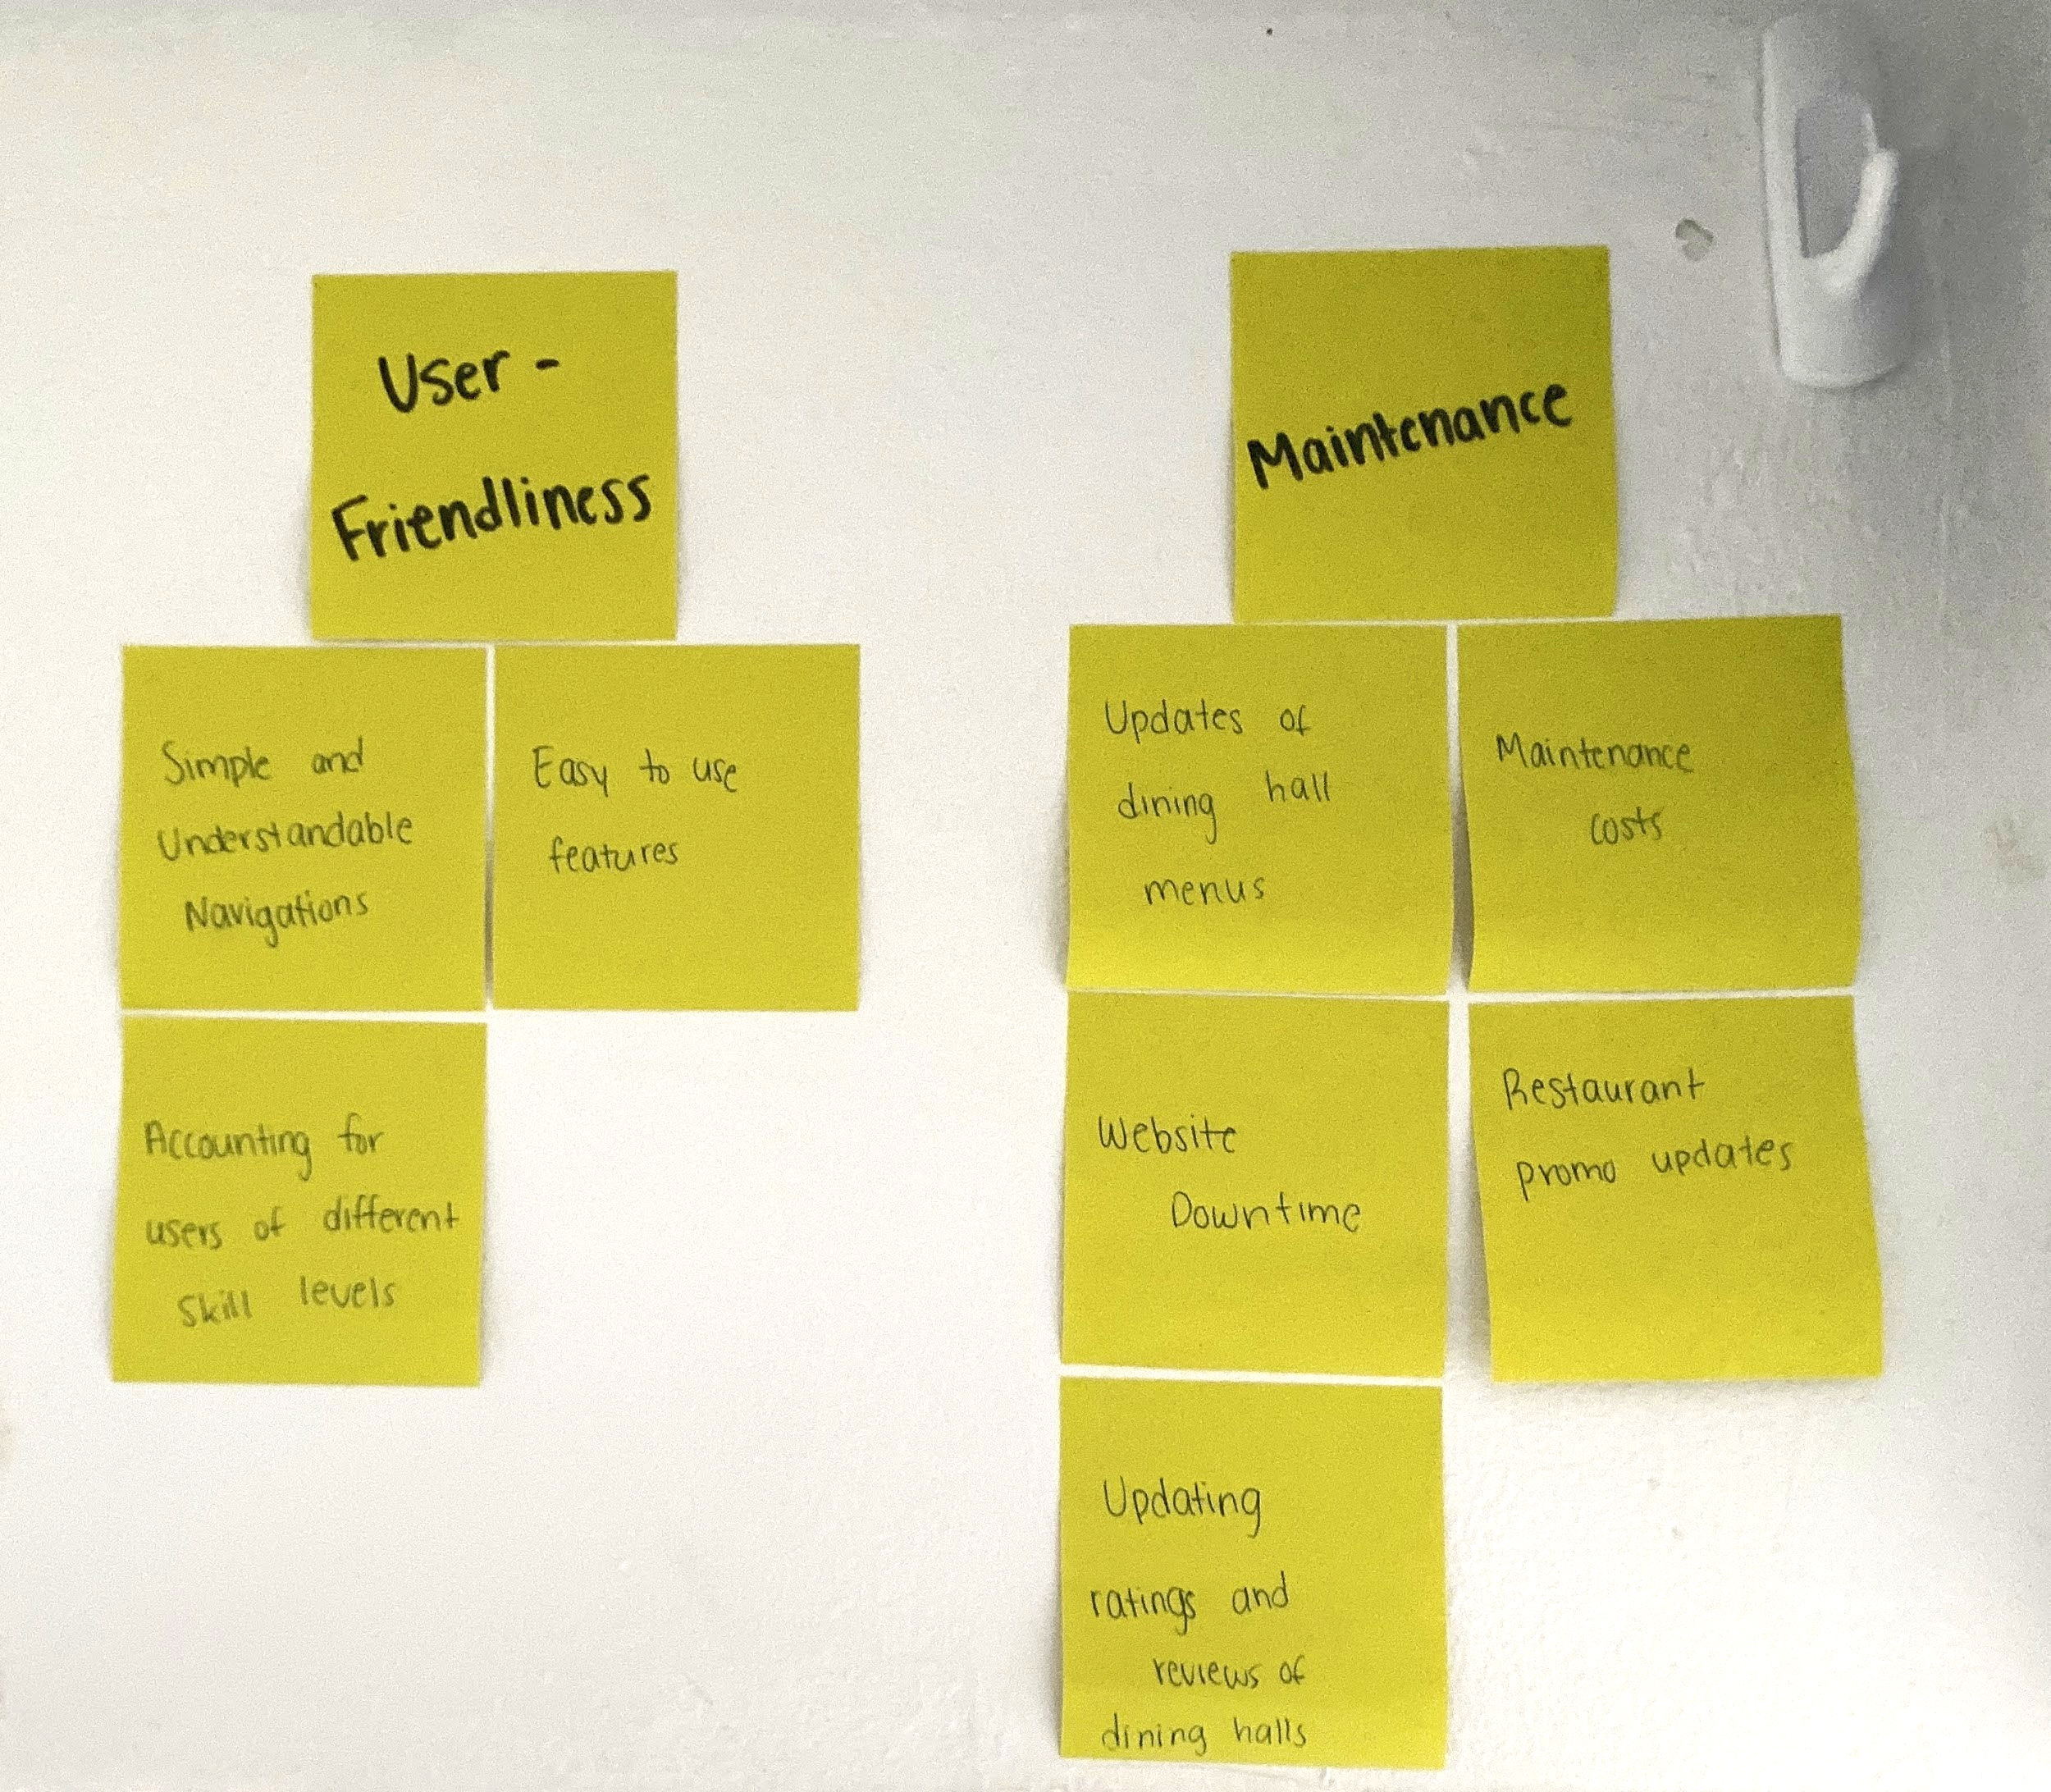 User -
Friendliness
Simple and
Understandable
Navigations
Easy to use
features
Accounting for
users of different
Skill levels
Maintenance
Updates of
dining hall
menus
Maintenance
costs
Website
Downtime
Restaurant
promo updates
Updating
ratings and
reviews of
dining halls